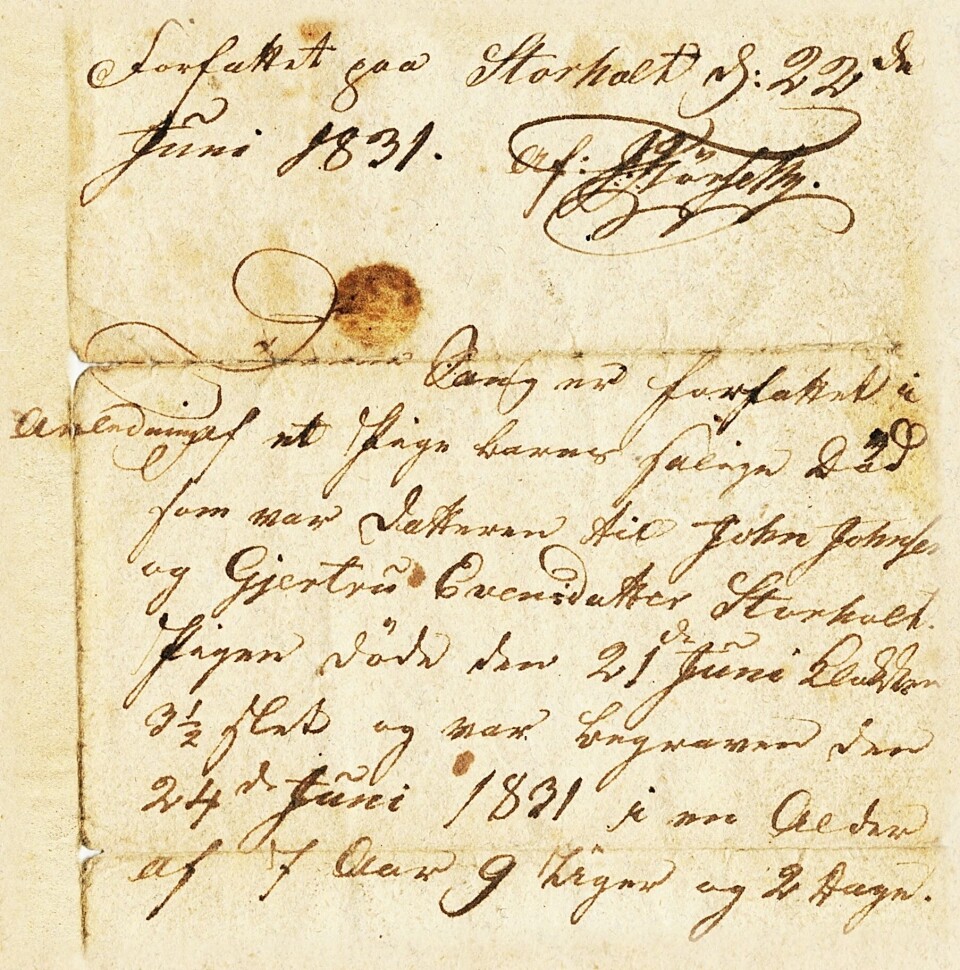 Forfattet paa Storholt d: 22de
Juni 1831. Af:
Denne Sang er forfattet i
Anledning af et Pige barns salige Död
som var Datteren til John Johnsen
og Gjertru Evensdatter Storholt.
Pigen döde den 21de Juni Klokken
3½ slet og var begraven den
24de Juni 1831 i en Alder
af 7 Aar 9 Uger og 2 Dage.